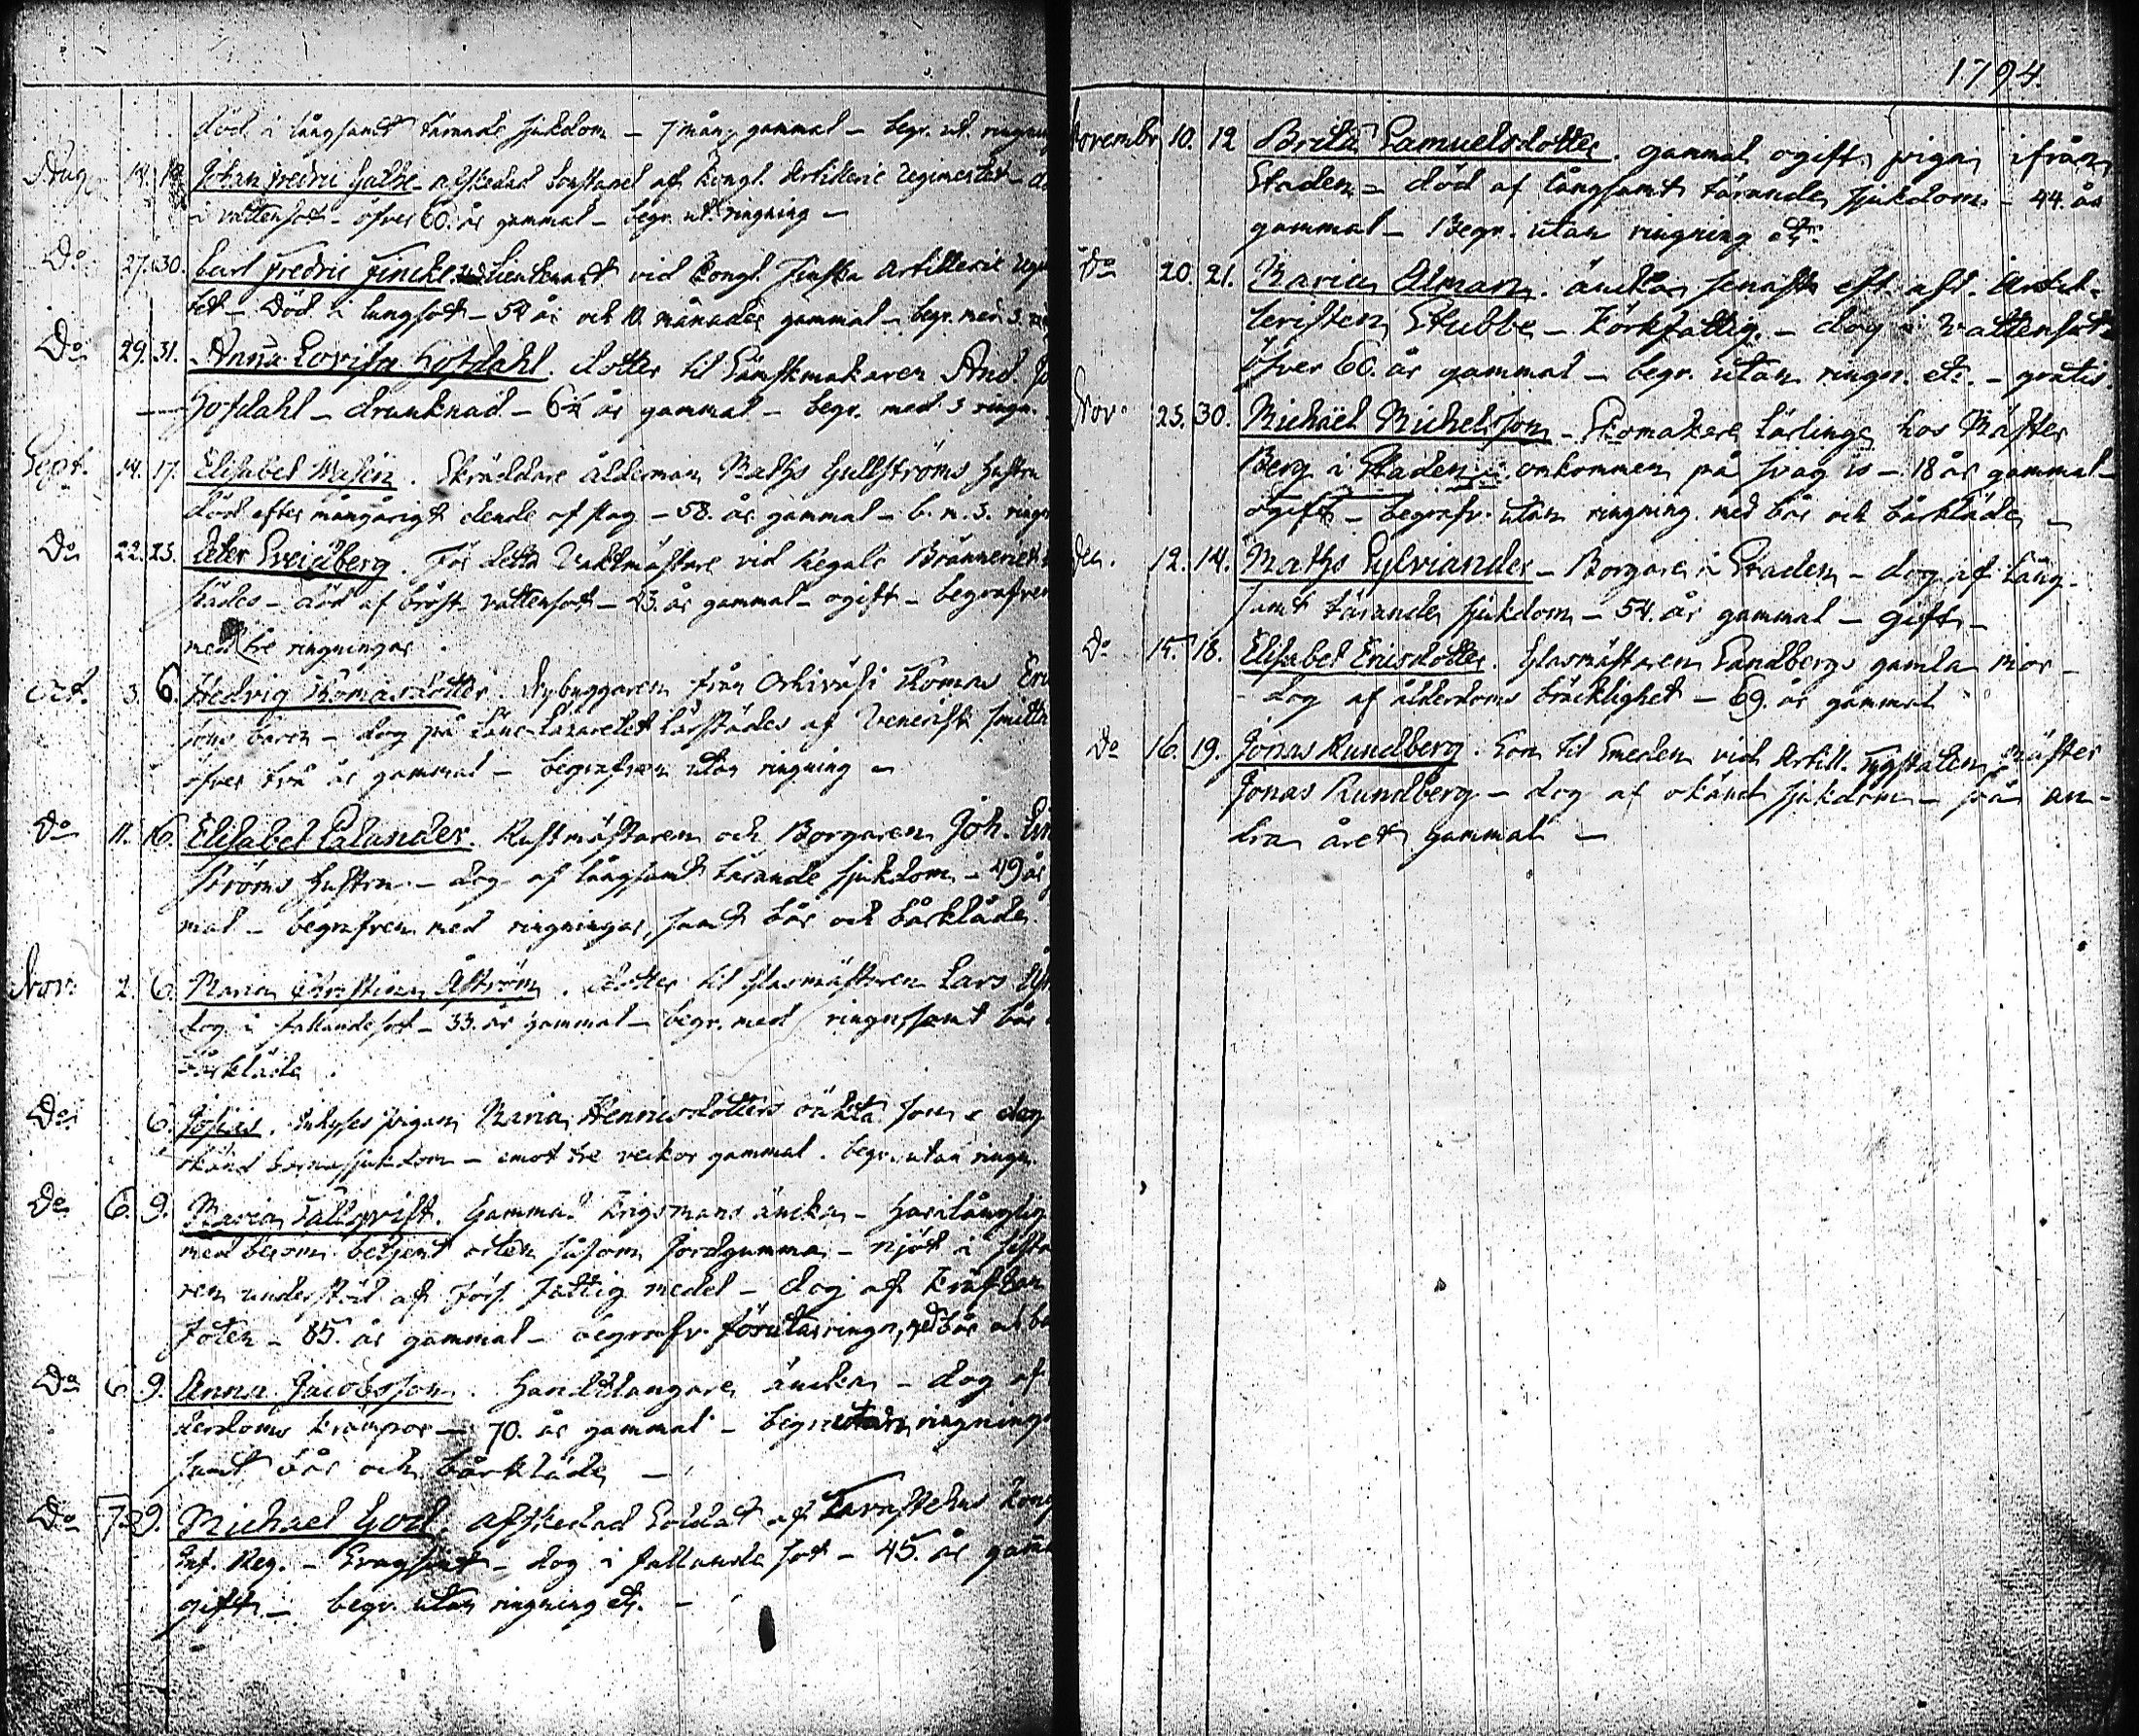 död i långsamt tärande sjukdom – 7 mån. gammal – begr. ut. ringning
Aug. 14. 19. Johan Fredric – afskedad Constapel af Kongl. Artillerie Regimentet –
i vattensot – öfver 60. år gammal – begr. ut. ringning –
Do 27. 30. Carl Fredric Fincke. Lieutenant vid Kongl. Finska Artillerie
tet – Död i lungsot – 54 år och 10. månader gammal – begr. med 3.
Do 29. 31. Anna Lovisa Hofdahl. dotter til Handskmakaren And.
Hofdahl – drunknad – 6½ år gammal – begr. med 3 ringn.
Sept. 14. 17. Elisabet. Skräddare ålderman Maths Gullströms hustru
död efter mångårigt elende af slag – 58. år gammal – b. m. 3. ringn
Do 22. 25. Peter Sveidberg. För detta Vaktmästare vid Regale Bränneriet
städes – död af bröst vattensot – 23. år gammal – ogift – begrafven
med tre ringningar.
Oct. 3. 6. Hedvig Thomasdotter. Nybyggaren från Thomas
sons barn – dog på Läns-Lazarettet härstädes af Venerisk smitta
öfver två år gammal – begrafven utan ringning –
Do 11. 16. Elisabet Palander. Rustmästaren och Borgaren Joh.
ströms hustru – dog af långsamt tärande sjukdom – 49 år
mal – begrafven med ringningar, samt bår och bårkläde.
Nov. 2. 6. Maria Christina Åström. dotter til Glasmästaren Lars
dog i fallandesot – 33. år gammal – begr. med ringn, samt bår
bårkläde.
Do 6. Josias. Inhyses pigan Maria Henricsdotters oäkta son – dog
okänd barnasjukdom – emot tre veckor gammal. begr. utan ringn.
Do 6. 9. Maria Fällqvist. Gammal Krigsmans äncka – har långlig
med beröm betjent orten såsom Jordgumma – njöt i sista
ren understöd af Förs. Fattig medel – dog af kräftan
foten – 85. år gammal – begrafv. förutan ringn, med bår och
Do 6. 9. Anna Jacobsson. Handtlangare äncka – dog af
derdoms krämpor – 70. år gammal – begr. utan ringning
samt bår och bårkläde –
Do 7. 9. Michael God. afskedad Soldat af Tavastehus
Inf. Reg. – Svagsint – dog i fallande sot – 45. år
gift – begr. utan ringning etc. –
1794.
Novembr 10. 12 Brita Samuelsdotter. gammal ogift piga ifrån
Staden – död af långsamt tärande sjukdom – 44. år
gammal – Begr. utan ringning etc.
Do 20. 21. Maria Alman. äncka senast eft. afl. Artil-
leristen Stubbe – Körkfattig. – dog i vattensot –
öfver 60. år gammal – begr. utan ringn. etc. – gratis.
Nov. 25. 30. Michaël Michelsson – Skomakere lärlinge hos Mäster
Berg i Staden – omkommen på svag is – 18 år gammal –
ogift – begrafv. utan ringning med bår och bårkläde –
Dec. 12. 14. Maths Sylviander – Borgare i Staden – dog af lång-
samt tärande sjukdom – 54. år gammal – gift –
Do 15. 18. Elisabet Ericsdotter. Glasmästaren Sandbergs gamla mor –
– dog af ålderdoms bräcklighet – 69. år gammal
Do 16. 19. Jonas Rundberg. Son til Smeden vid Artill. Tygstaten Mäster
Jonas Rundberg – dog af okänd sjukdom – på an-
dra året gammal –